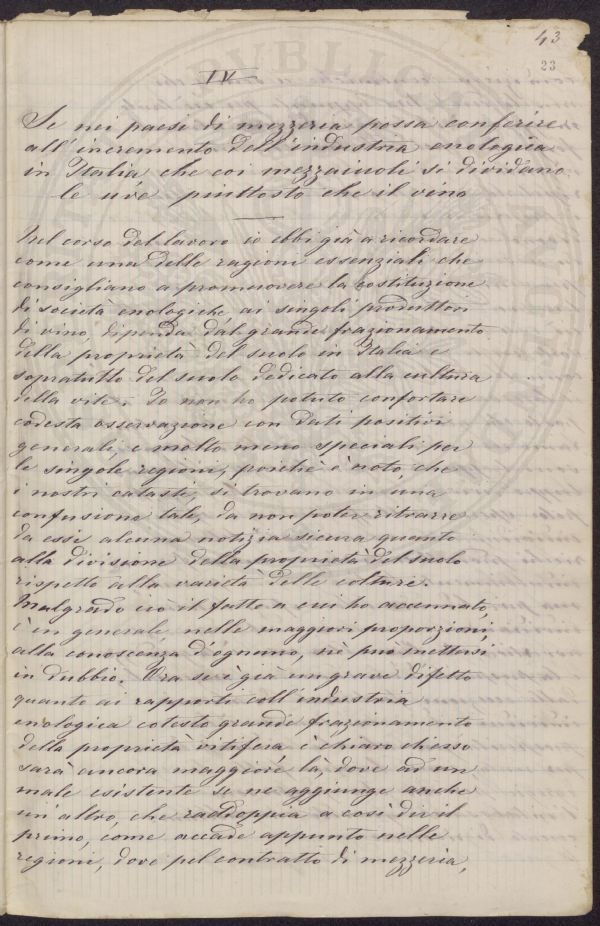 43
23
IV
Se nei paesi di mezzeria possa conferire
all'incremento dell'industria enologica
in Italia che coi mezzaiuoli si dividano
le uve piuttosto che il vino
Nel corso del lavoro io ebbi già a ricordare
come una delle ragioni essenziali che
consigliano a promuovere la costituzione
di società enologiche, ai singoli produttori
di vino, dipenda dal grande frazionamento
della proprietà del suolo in Italia e
sopratutto del suolo dedicato alla cultura
della vite. Io non ho potuto confortare
codesta osservazione con dati positivi
generali, e molto meno speciali per
le singole regioni, poichè è noto, che
i nostri catasti, si trovano in una
confusione tale, da non poter ritrarre
da essi alcuna notizia sicura quanto
alla divisione della proprietà del suolo
rispetto alla varietà delle colture.
Malgrado ciò il fatto a cui ho accennato,
è in generale, nelle maggiori proporzioni,
alla conoscenza d'ognuno, nè può mettersi
in dubbio. Ora se è già un grave difetto
quanto ai rapporti coll'industria
enologica cotesto grande frazionamento
della proprietà vitifera è chiaro ch'esso
sarà ancora maggiore là, dove ad un
male esistente se ne aggiunge anche
un altro, che raddoppia a così dir il
primo, come accade appunto nelle
regioni, dove pel contratto di mezzeria,